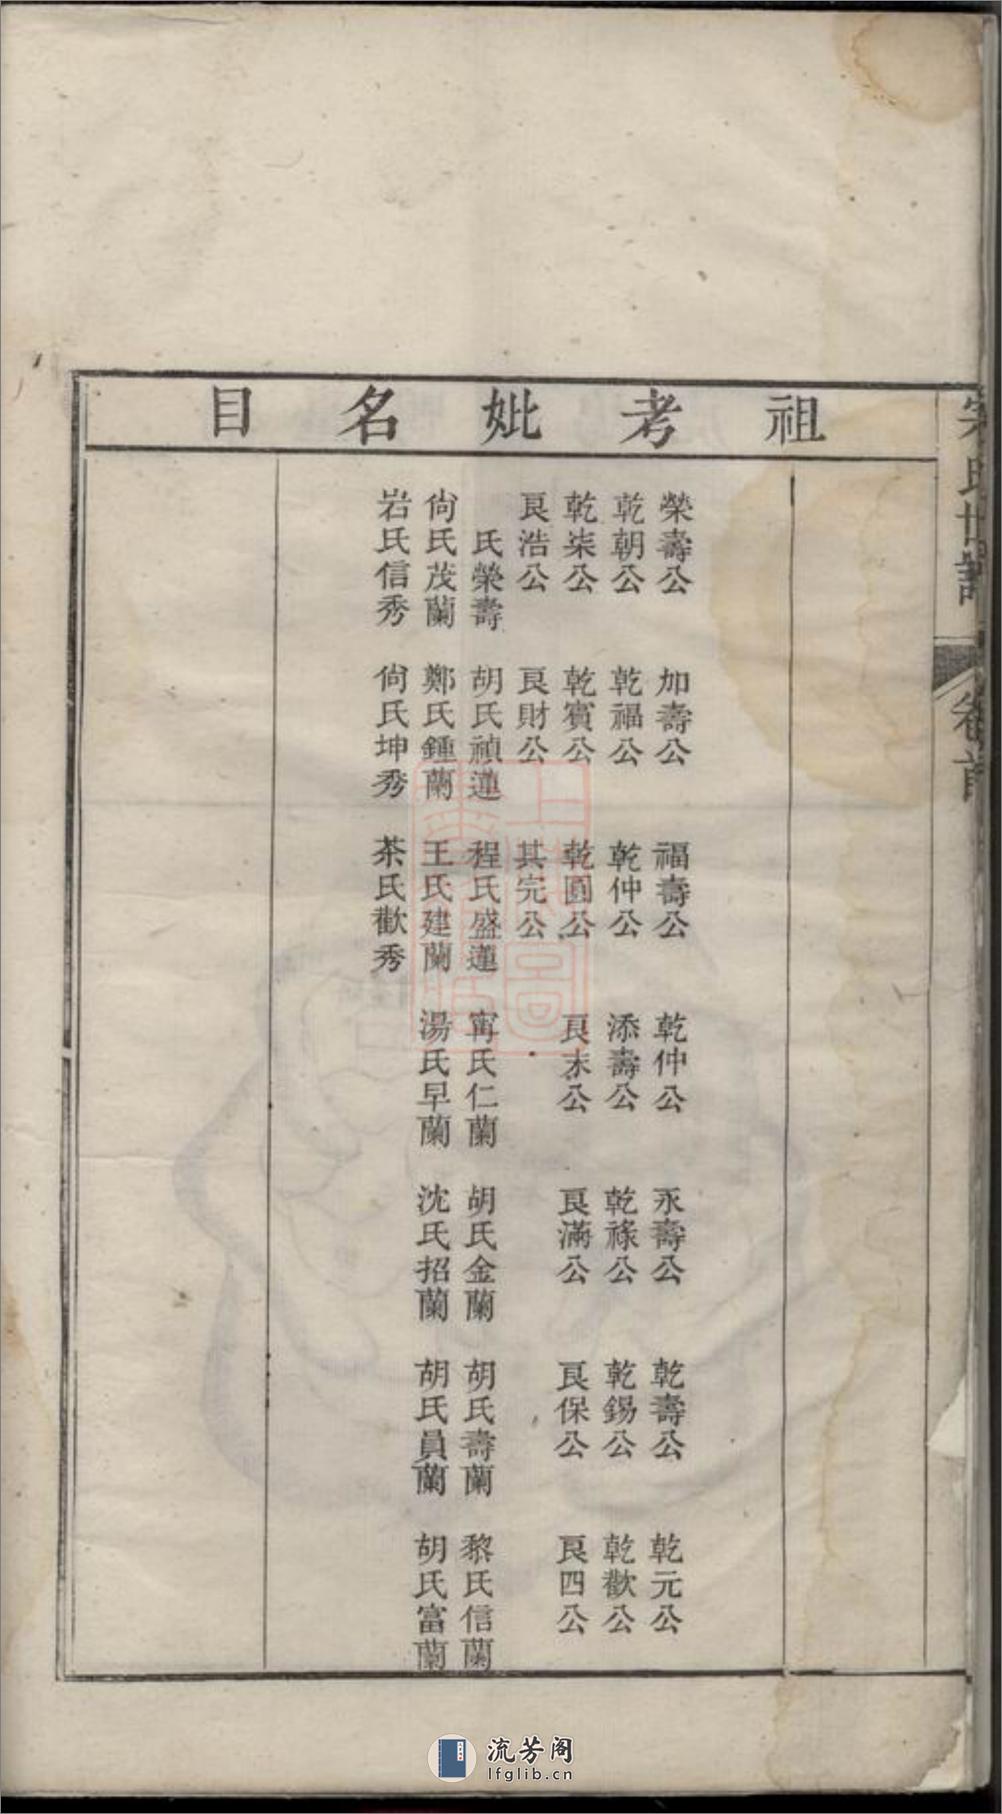 祖考妣名目
榮壽公 加壽公 福壽公 乾仲公 永壽公 乾壽公 乾元公
乾朝公 乾福公 乾仲公 添壽公 乾祿公 乾錫公 乾歡公
乾柒公 乾賓公 乾圓公 艮末公 艮滿公 艮保公 艮四公
艮浩公 艮財公 其完公
氏榮壽 胡氏禎蓮 程氏盛蓮 甯氏仁蘭 胡氏金蘭 胡氏壽蘭 黎氏信蘭
尙氏茂蘭 鄭氏鍾蘭 王氏建蘭 湯氏早蘭 沈氏招蘭 胡氏員蘭 胡氏富蘭
岩氏信秀 尙氏坤秀 茶氏歡秀
氏世譜 卷首
流芳阁
lfglib.cn